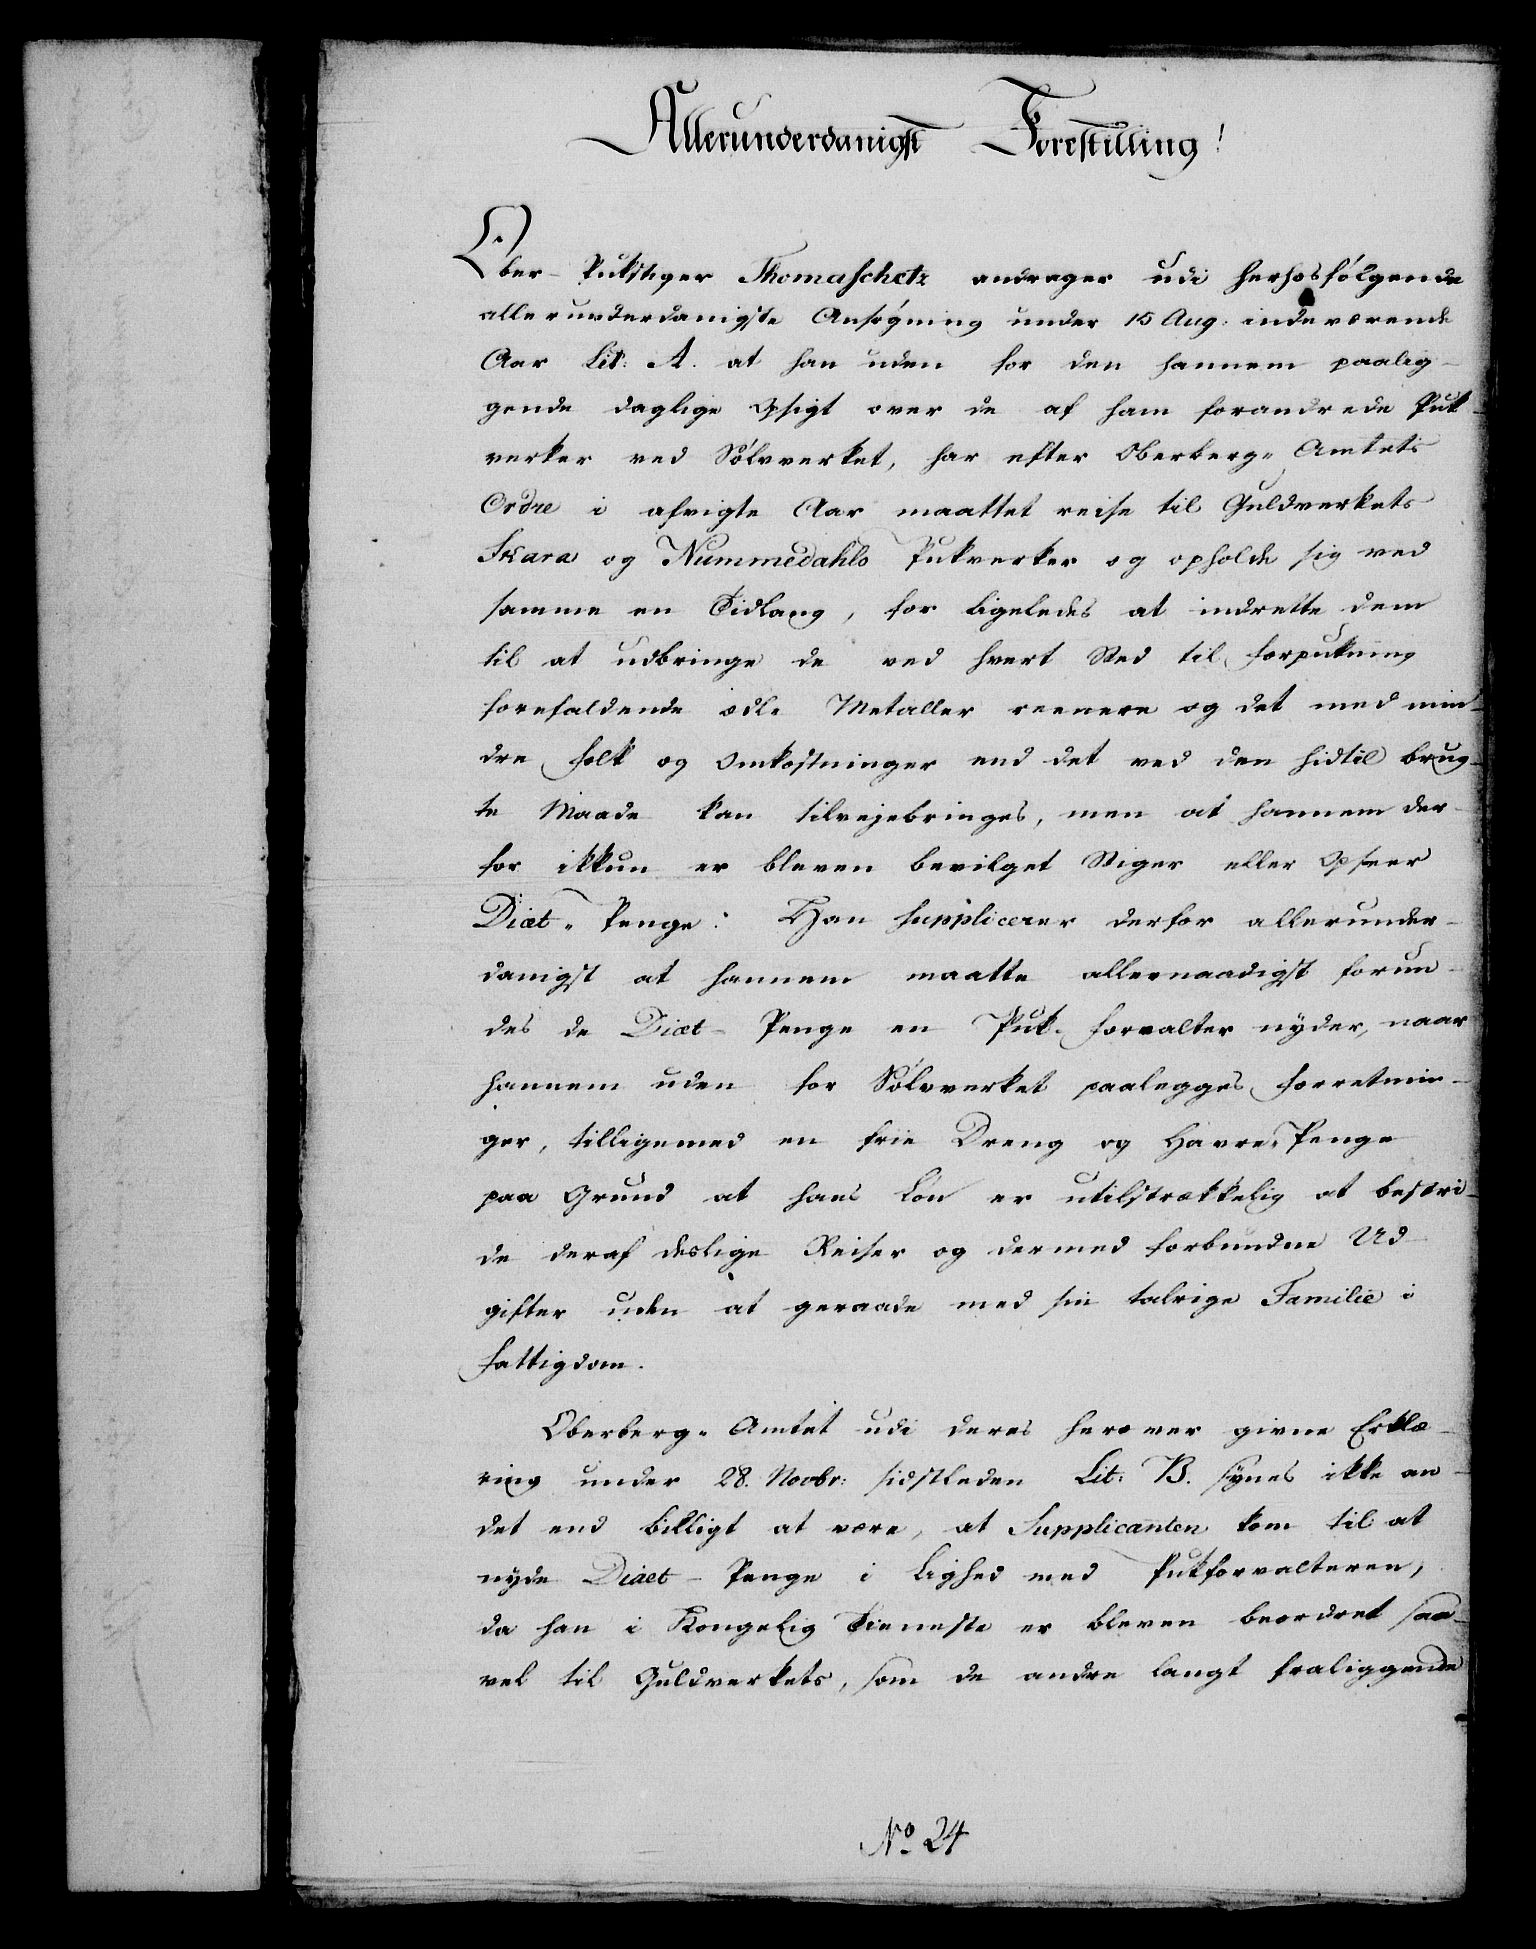 Allerunderdanigst Forestilling!
Ober-Pukstiger Thomaschetz andrager udi herhosfølgende
allerunderdanigste Ansøgning under 15 Aug: indeværende
Aar Lit: A. at han uden for den hannem paalig-
gende daglige Opsigt over de af ham forandrede Puk-
verker ved Sølvverket, har efter Oberberg-Amtets
Ordre i afvigte Aar maattet reise til Guldverkets
Skara og Nummedahls Pukverker og opholde sig ved
samme en Tidlang, for ligeledes at indrette dem
til at udbringe de ved hvert Sted til Forpukning
forefaldende ædle Metaller reenere og det med min-
dre Folk og Omkostninger end det ved den hidtil brug-
te Maade kan tilvejebringes, men at hannem der-
for ikkun er bleven bevilget Stiger eller Opseer
Diæt-Penge: Han supplicerer derfor allerunder-
danigst at hannem maatte allernaadigst forun-
des de Diæt-Penge en Puk-Forvalter nyder, naar
hannem uden for Sølvverket paalegges Forretnin-
ger, tilligemed en friie Dreng og Havre-Penge
paa Grund at hans Løn er utilstrækkelig at bestri-
de deraf deslige Reiser og dermed forbundne Ud-
gifter uden at geraade med sin talrige Familie i
Fattigdom.
Oberberg-Amtet udi deres herover givne Erklæ-
ring under 28. Novbr: sidstleden Lit: B. synes ikke an-
det end billigt at være, at Supplicanten kom til at
nyde Diaet-Penge i Lighed med Pukforvalteren,
da han i Kongelig Tieneste er bleven beordret saa-
vel til Guldverkets, som de andre langt fraliggende
No. 24